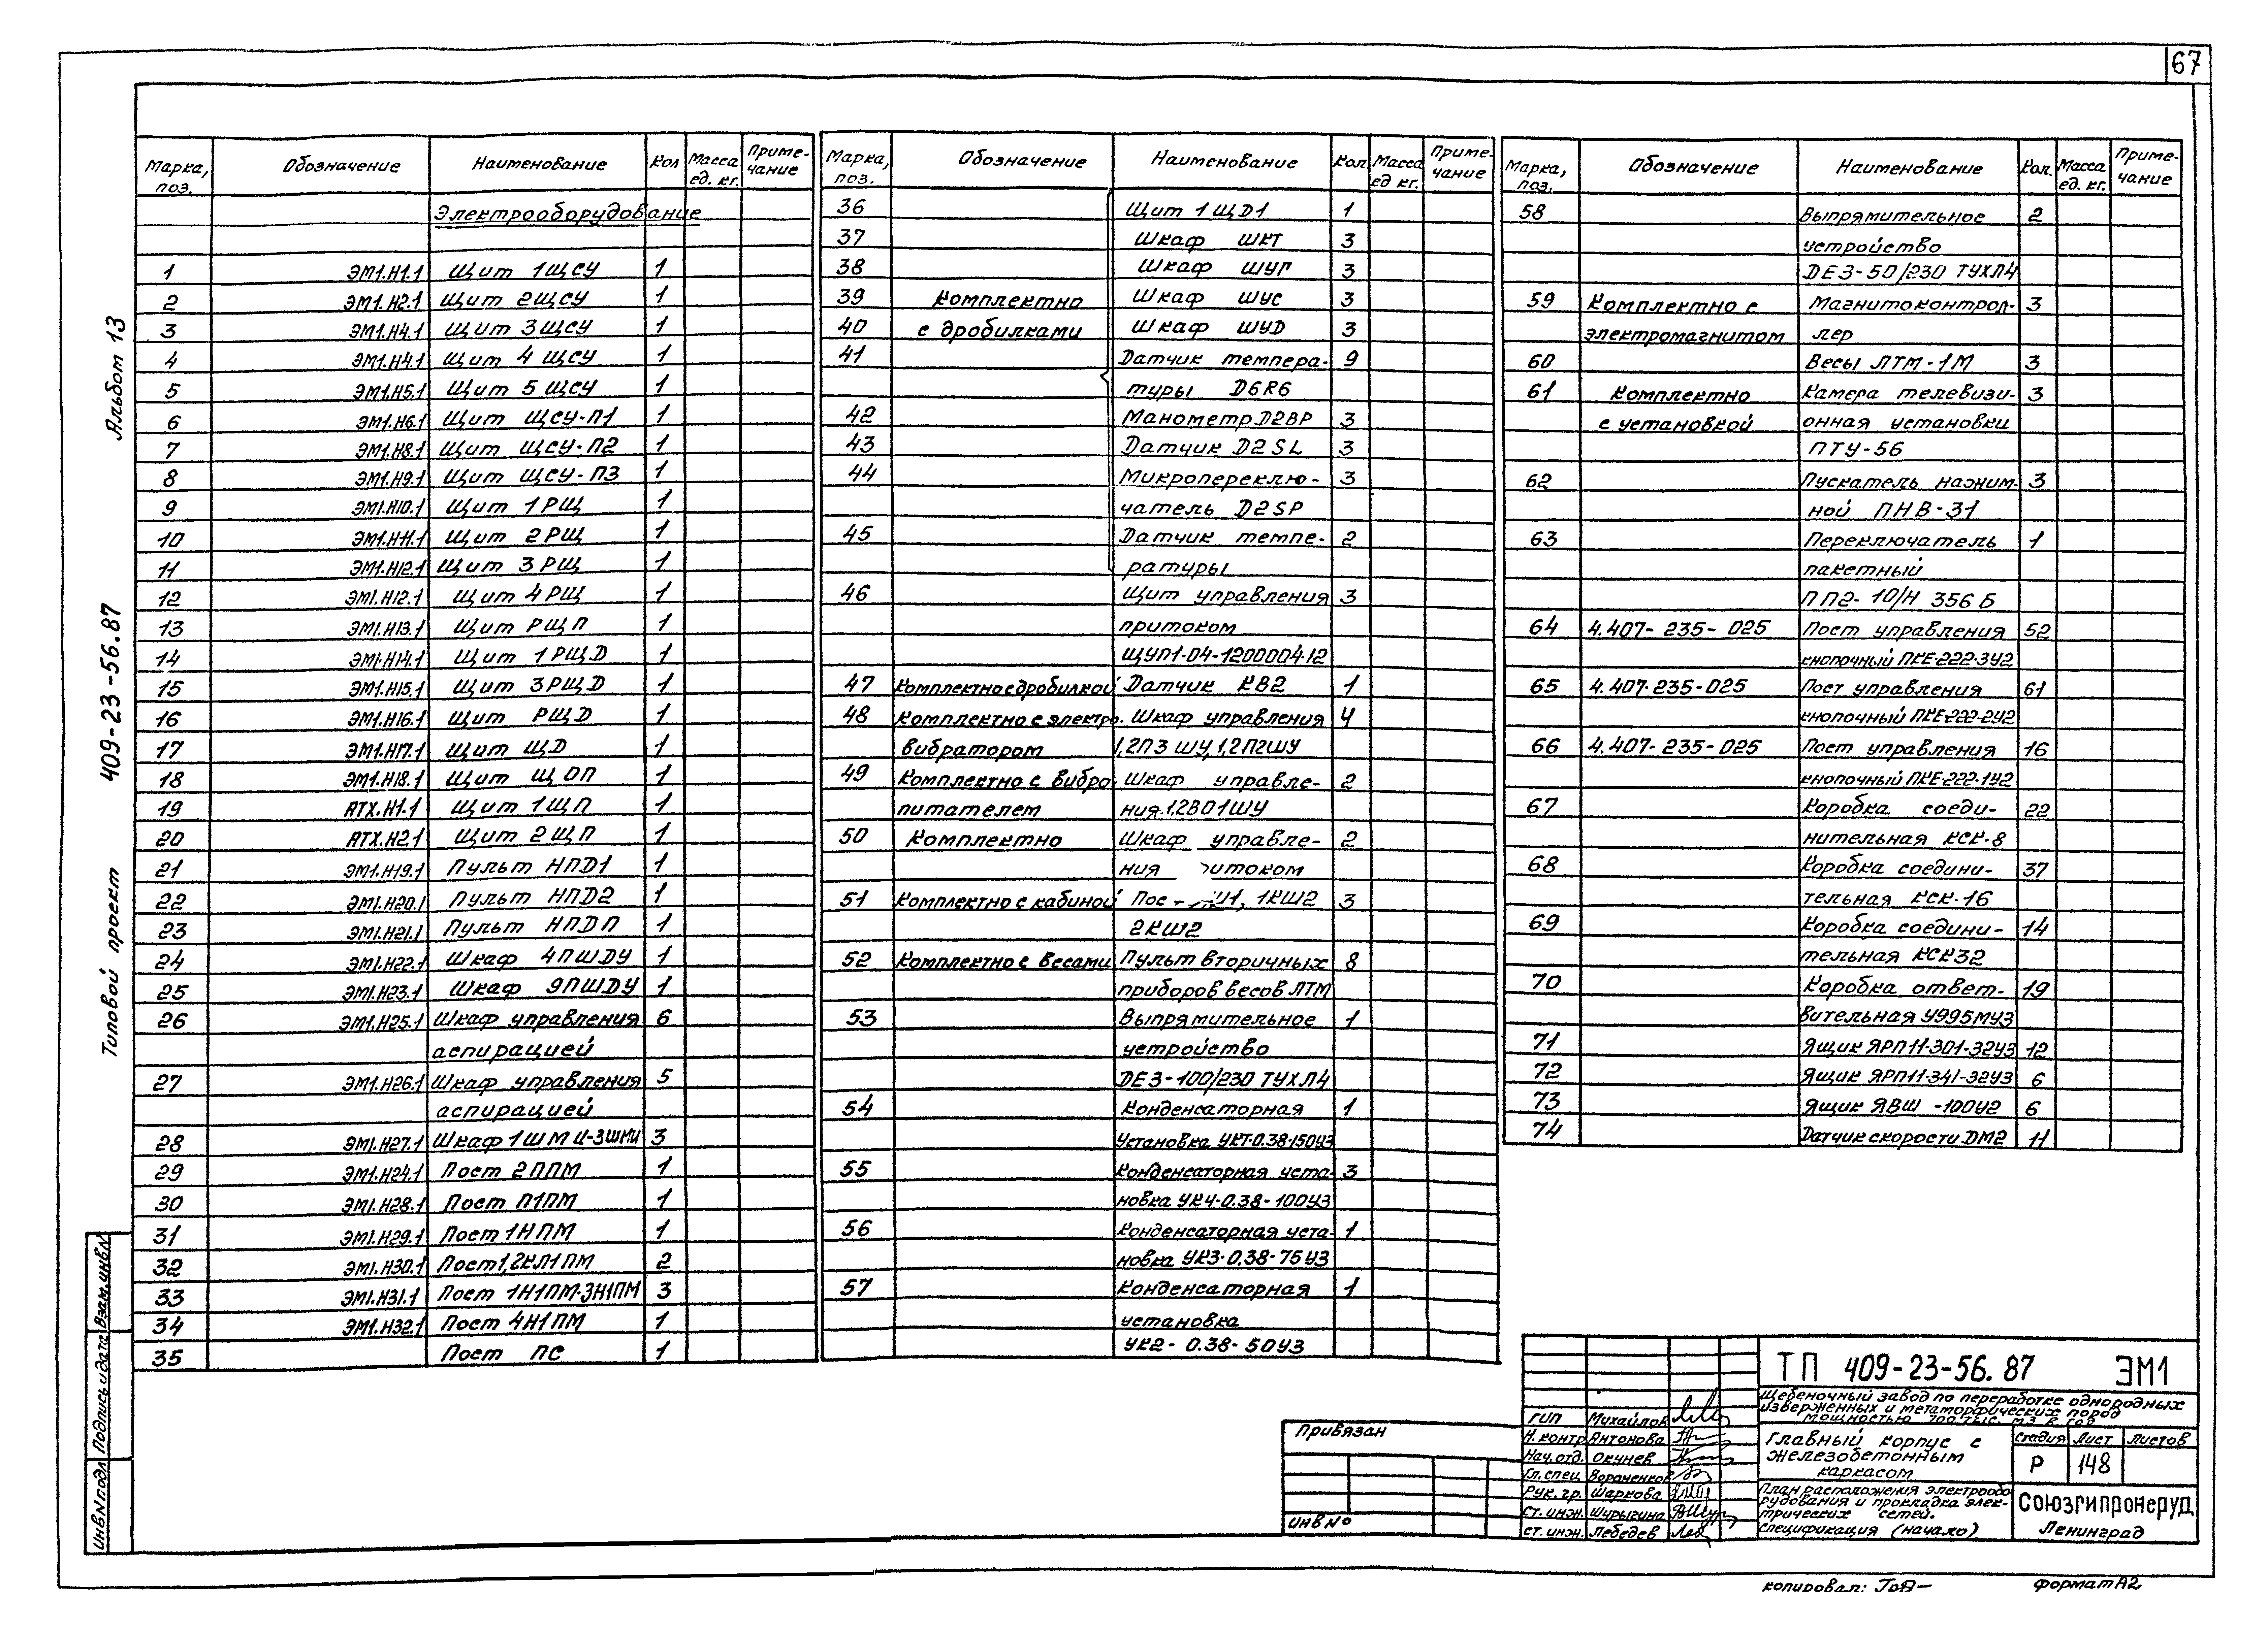 67
Альбом 13
409-23-56.87
Типовой проект
Взам.инв.N
Подпись и дата
Инв.N подл
Марка, поз. Обозначение Наименование Кол Масса ед. кг. Приме-чание
Электрооборудование
1 ЭМ1.Н1.1 Щит 1ЩСУ 1
2 ЭМ1.Н2.1 Щит 2ЩСУ 1
3 ЭМ1.Н4.1 Щит 3ЩСУ 1
4 ЭМ1.Н4.1 Щит 4 ЩСУ 1
5 ЭМ1.Н5.1 Щит 5 ЩСУ 1
6 ЭМ1.Н6.1 Щит ЩСУ-П1 1
7 ЭМ1.Н8.1 Щит ЩСУ-П2 1
8 ЭМ1.Н9.1 Щит ЩСУ-П3 1
9 ЭМ1.Н10.1 Щит 1РЩ 1
10 ЭМ1.Н11.1 Щит 2РЩ 1
11 ЭМ1.Н12.1 Щит 3РЩ 1
12 ЭМ1.Н12.1 Щит 4РЩ 1
13 ЭМ1.Н13.1 Щит РЩП 1
14 ЭМ1.Н14.1 Щит 1РЩД 1
15 ЭМ1.Н15.1 Щит 3РЩД 1
16 ЭМ1.Н16.1 Щит РЩД 1
17 ЭМ1.Н17.1 Щит ЩД 1
18 ЭМ1.Н18.1 Щит ЩОП 1
19 АТХ.Н1.1 Щит 1ЩП 1
20 АТХ.Н2.1 Щит 2ЩП 1
21 ЭМ1.Н19.1 Пульт НПД1 1
22 ЭМ1.Н20.1 Пульт НПД2 1
23 ЭМ1.Н21.1 Пульт НПДП 1
24 ЭМ1.Н22.1 Шкаф 4ПШДУ 1
25 ЭМ1.Н23.1 Шкаф 9ПШДУ 1
26 ЭМ1.Н25.1 Шкаф управления 6
аспирацией
27 ЭМ1.Н26.1 Шкаф управления 5
аспирацией
28 ЭМ1.Н27.1 Шкаф 1ШМИ-3ШМИ 3
29 ЭМ1.Н24.1 Пост 2ППМ 1
30 ЭМ1.Н28.1 Пост П1ПМ 1
31 ЭМ1.Н29.1 Пост 1НПМ 1
32 ЭМ1.Н30.1 Пост1,2КЛ1ПМ 2
33 ЭМ1.Н31.1 Пост 1Н1ПМ-3Н1ПМ 3
34 ЭМ1.Н32.1 Пост 4Н1ПМ 1
35 Пост ПС 1
Марка, поз. Обозначение Наименование Кол. Масса ед кг. Приме-чание
36 Щит 1ЩД1 1
37 Шкаф ШКТ 3
38 Шкаф ШУГ 3
39 Комплектно Шкаф ШУС 3
40 с дробилками Шкаф ШУД 3
41 Датчик темпера- 9
туры D6R6
42 Манометр D2BP 3
43 Датчик D2SL 3
44 Микропереклю- 3
чатель D2SP
45 Датчик темпе- 2
ратуры
46 Щит управления 3
притоком
ЩУП1-04-1200004.12
47 Комплектно с дробилкой Датчик КВ2 1
48 Комплектно с электро- Шкаф управления 4
вибратором 1,2П3 ШУ, 1,2П2ШУ
49 Комплектно с вибро- Шкаф управле- 2
питателем ния.1,2В01ШУ
50 Комплектно Шкаф управле- 2
ния итоком
51 Комплектно с кабиной 1КШ2 3
2КШ2
52 Комплектно с весами Пульт вторичных 8
приборов весов ЛТМ
53 Выпрямительное 1
устройство
DE3-100/230 ТУХЛ4
54 Конденсаторная 1
установка УКТ-0.38-150У3
55 Конденсаторная уста- 3
новка УК4-0.38-100У3
56 Конденсаторная уста- 1
новка УК3-0.38-75У3
57 Конденсаторная 1
установка
УК2-0.38-50У3
Марка, поз. Обозначение Наименование Кол. Масса ед. кг. Приме-чание
58 Выпрямительное 2
устройство
DE3-50/230 ТУХЛ4
59 Комплектно с Магнитоконтрол- 3
электромагнитом лер
60 Весы ЛТМ-1М 3
61 Комплектно Камера телевизи- 3
с установкой онная установки
ПТУ-56
62 Пускатель нажим- 3
ной ПНВ-31
63 Переключатель 1
пакетный
ПП2-10/Н 356 Б
64 4.407-235-025 Пост управления 52
кнопочный ПКЕ-222-3У2
65 4.407-235-025 Пост управления 61
кнопочный ПКЕ-222-2У2
66 4.407-235-025 Пост управления 16
кнопочный ПКЕ-222-1У2
67 Коробка соеди- 22
нительная КСК-8
68 Коробка соедини- 37
тельная КСК-16
69 Коробка соедини- 14
тельная КСК32
70 Коробка ответ- 19
вительная У995МУ3
71 Ящик ЯРП11-301-32У3 12
72 Ящик ЯРП11-341-32У3 6
73 Ящик ЯВШ-100У2 6
74 Датчик скорости ДМ2 11
Привязан
ИНВ №
ГИП Михайлов
Н. контр Антонова
Нач. отд. Окунев
Гл. спец Вороненков
Рук. гр. Шаркова
Ст. инж. Шурыгина
Ст. инж. Лебедев
ТП 409-23-56.87 ЭМ1
Щебеночный завод по переработке однородных
изверженных и метаморфических пород
мощностью 700 тыс. м3 в год
Главный корпус с
железобетонным
каркасом
Стадия Лист Листов
Р 148
План расположения электрообо
рудования и прокладка элек-
трических сетей.
Спецификация (начало)
Союзгипронеруд
Ленинград
Копировал:
Формат А2